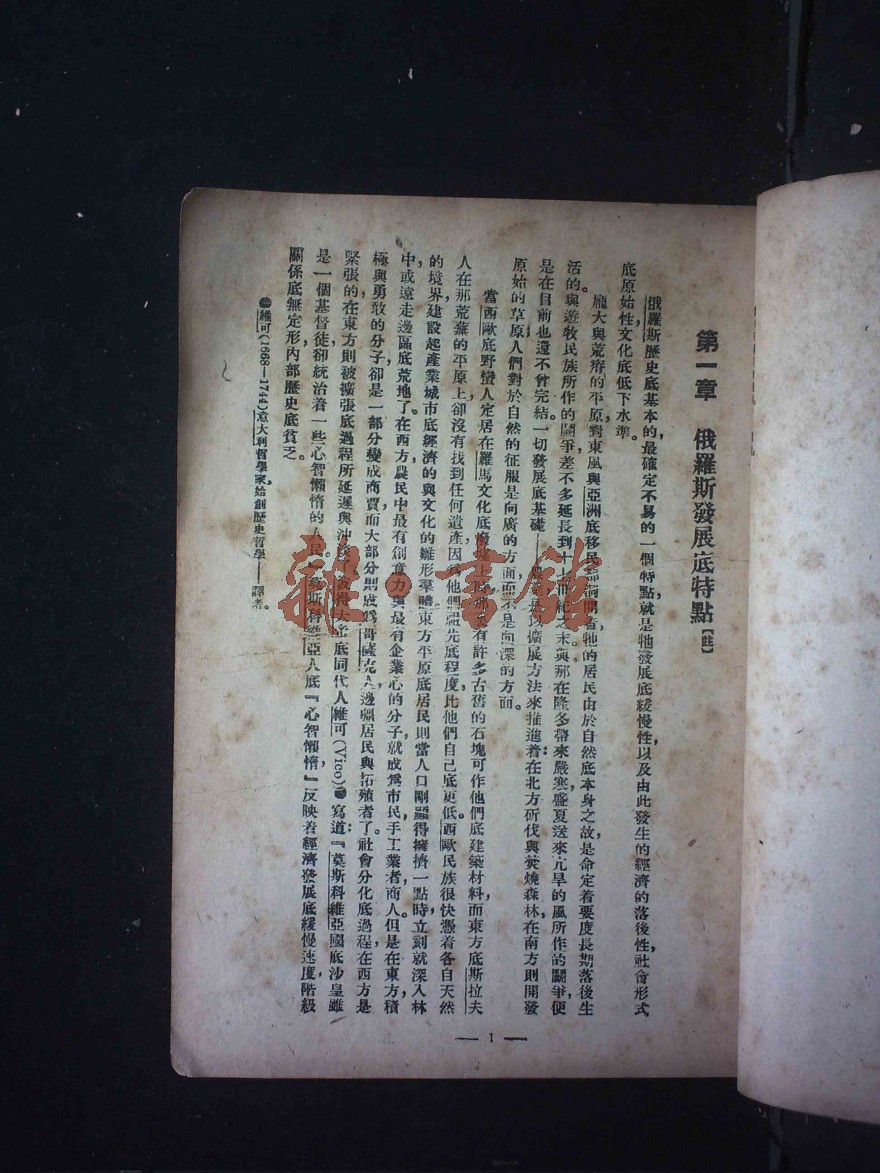 第一章　俄羅斯發展底特點【註】
俄羅斯歷史底基本的，最確定不易的一個特點，就是牠發展底緩慢性，以及由此發生的經濟的落後性，社會形式
底原始性，文化底低下水準。
龐大與荒瘠的平原，對東風與亞洲底移民都洞開着。牠的居民由於自然底本身之故，是命定着要度長期落後生
活的。與遊牧民族所作的鬪爭，差不多延長到十七世紀之末。與那在隆冬帶來嚴寒，盛夏送來亢旱的風所作的鬪爭，便
是在目前也還不曾完結。一切發展底基礎——農業，是以擴展方法來推進着：在北方斫伐與焚燒森林，在南方則開發
原始的草原。人們對於自然的征服是向廣的方面，而不是向深的方面。
當西歐底野蠻人定居在羅馬文化底廢墟上時，那裏有許多古舊的石塊可作他們底建築材料，而東方底斯拉夫
人在那荒蕪的平原上卻沒有找到任何遺產，因爲他們祖先底程度比他們自己底更低。西歐民族很快憑着各自天然
的境界，建設起產業城市底經濟的與文化的雛形羣。東方平原底居民則當人口剛顯得擁擠一點時，立刻就深入林
中，或遠走邊區底荒地了。在西方，農民中最有創意力與最有企業心的分子，就成爲市民，手工業者，商人。但是在東方，積
極與勇敢的分子卻是一部分變成商賈，而大部分則成爲哥薩克人，邊疆居民與拓殖者了。社會分化底過程，在西方是
緊張的，在東方則被擴張底過程所延遲與沖淡了。彼得大帝底同代人維可(Vico)●寫道：『莫斯科維亞國底沙皇，雖
是一個基督徒，卻統治着一些心智懶惰的人民。』莫斯科維亞人底『心智懶惰』反映着經濟發展底緩慢速度，階級
關係底無定形，內部歷史底貧乏。
●維可(1668—1744)意大利哲學家，始創歷史哲學——譯者。
— 1 —
雜·書館